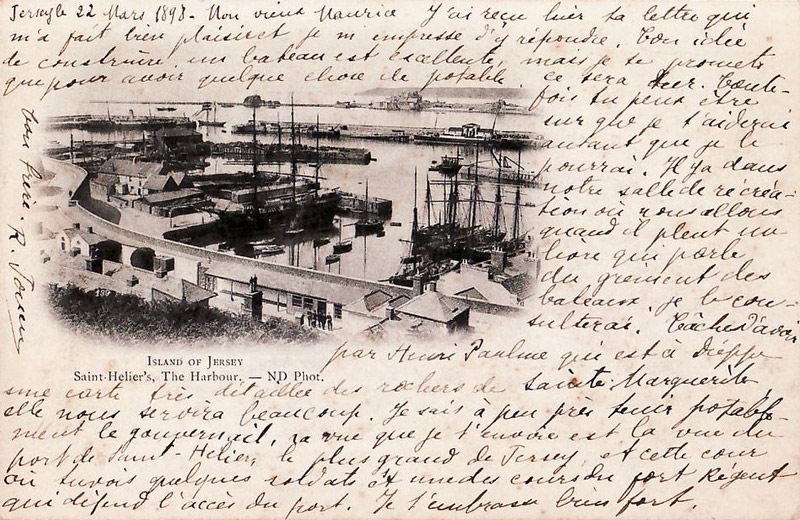 Jersey le 22 Mars 1898 - Mon vieux Maurice J'ai reçu hier ta lettre qui
m'a fait bien plaisir et je m'empresse d'y répondre. Ton idée
de construire un bateau est excellente, mais je te promets
que pour avoir quelque chose de potable, ce sera cher. Toute-
fois tu peux être
sur que je t'aiderai
autant que je le
pourrai. Il y a dans
notre salle de récréa-
tion où nous allons
quand il pleut un
livre qui parle
du gréement des
bateaux. je le con-
sulterai. Tâche d'avoir
par Henri Paulme qui est à dieppe
une carte très détaillée des rochers de Sainte-Marguerite
elle nous servira beaucoup. Je sais à peu près tenir potable-
ment le gouvernail, la vue que je t'envoie est la vue du
port de Saint-Hélier, le plus grand de Jersey, et cette cour
où tu vois quelques soldats est une des cours du fort Régent
qui défend l'accès du port. Je t'embrasse bien fort.
Ton frère. R.
ISLAND OF JERSEY
Saint-Helier's, The Harbour. — ND Phot.